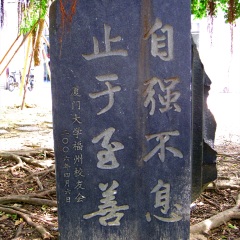 自强不息
止于至善
厦门大学福州校友会
二〇〇六年四月六日